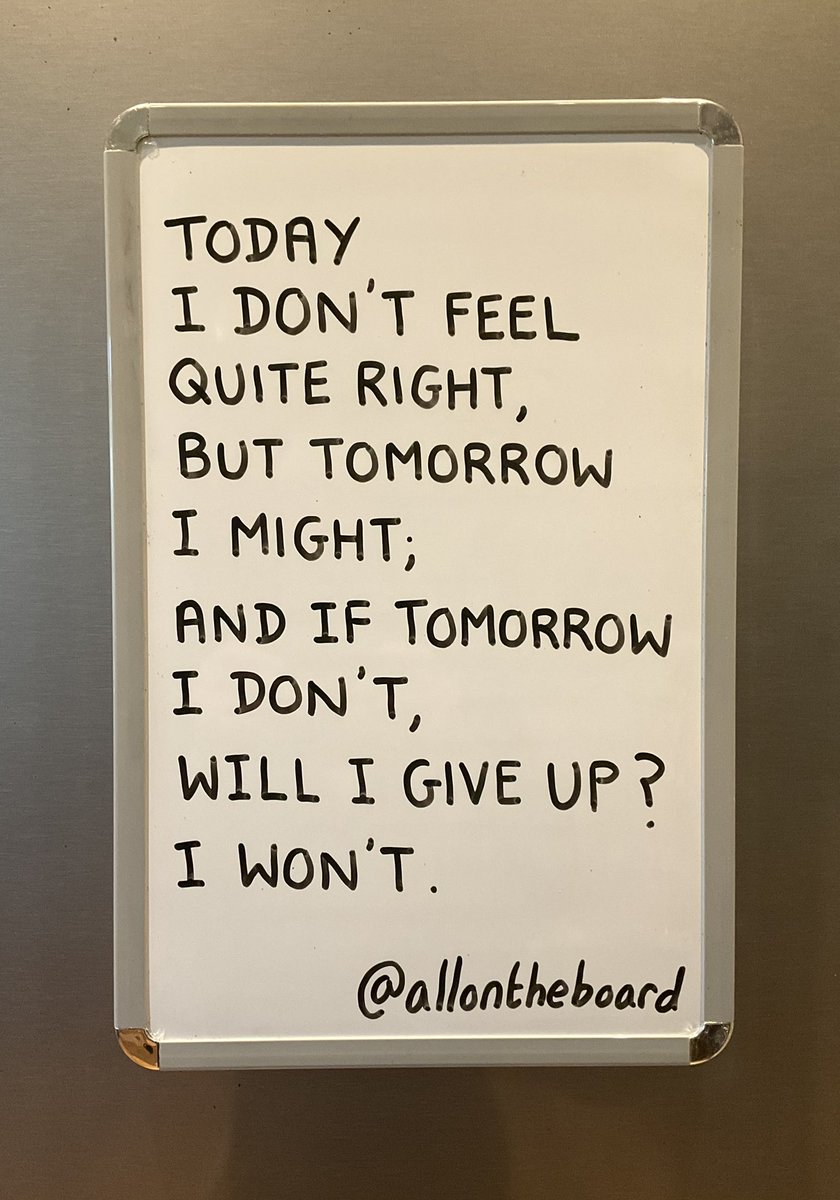 TODAY
I DON'T FEEL
QUITE RIGHT,
BUT TOMORROW
I MIGHT;
AND IF TOMORROW
I DON'T,
WILL I GIVE UP?
I WON'T.
@allontheboard